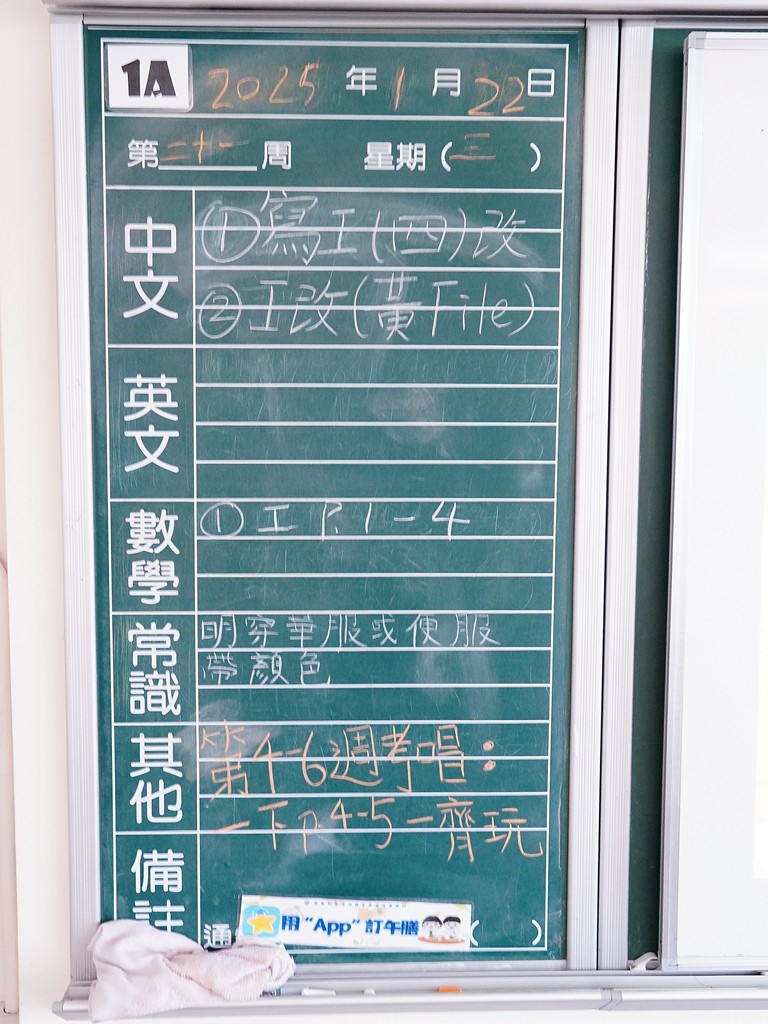 1A 2025 年 1 月 22 日
第二十一周 星期(三)
中文
①寫工(四)改
②工改(黃File)
英文
數學
①工 P.1-4
常識
明穿華服或便服
帶顏色
其他
第4-6週考唱：
一下 P.4-5 一齊玩
備註
通
用"App"訂午膳
( )